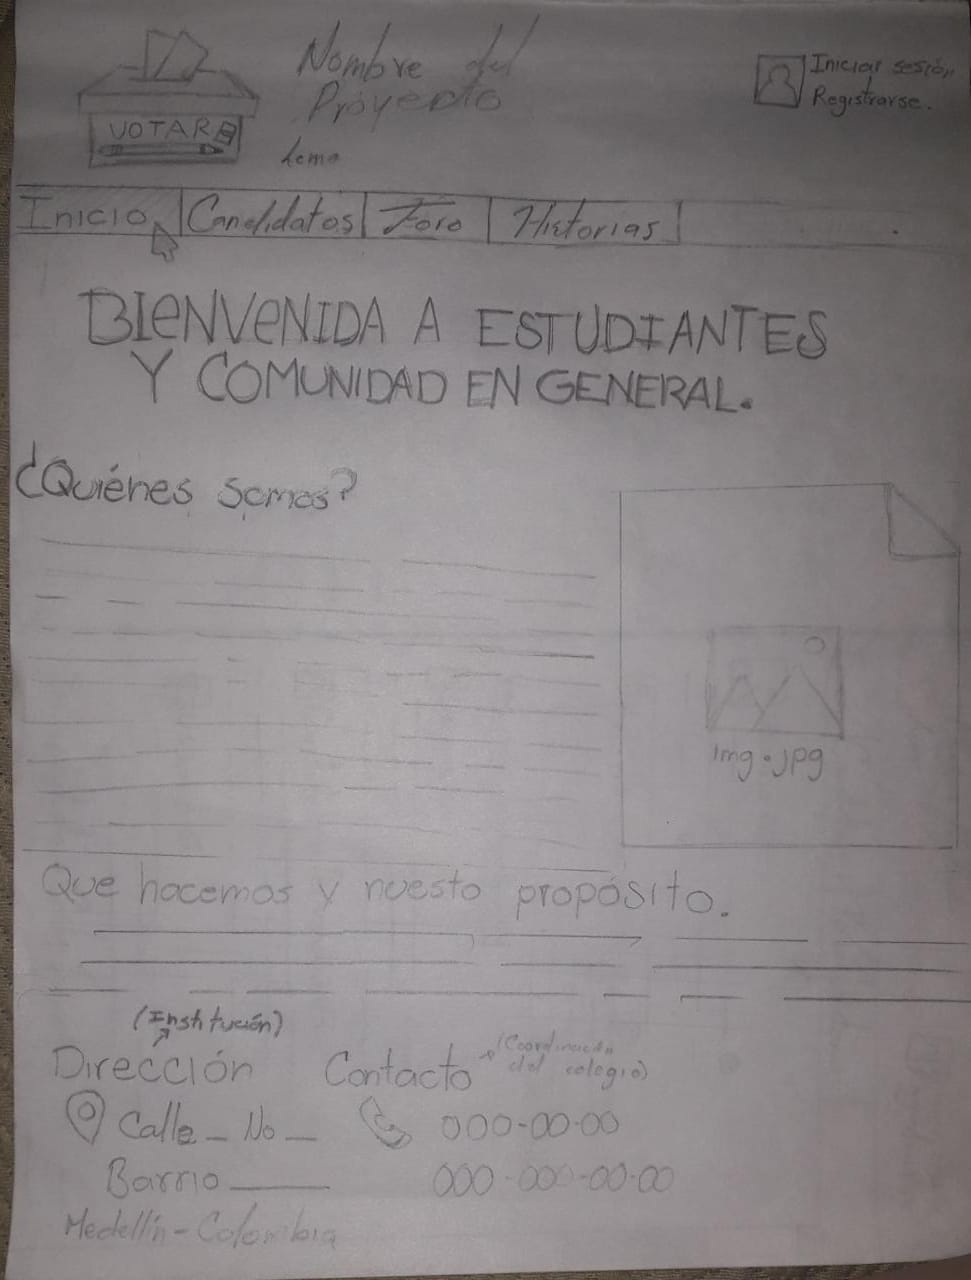 VOTAR
Nombre del
Proyecto
Lema
Iniciar sesión
Registrarse.
Inicio Candidatos Foro Historias
BIENVENIDA A ESTUDIANTES
Y COMUNIDAD EN GENERAL.
¿Quiénes somos?
img.jpg
Que hacemos y nuesto propósito.
(Institución)
Dirección
Calle _ No _
Barrio ____
Medellín - Colombia
(Coordinación
del colegio)
Contacto
000-00-00
000-000-00-00